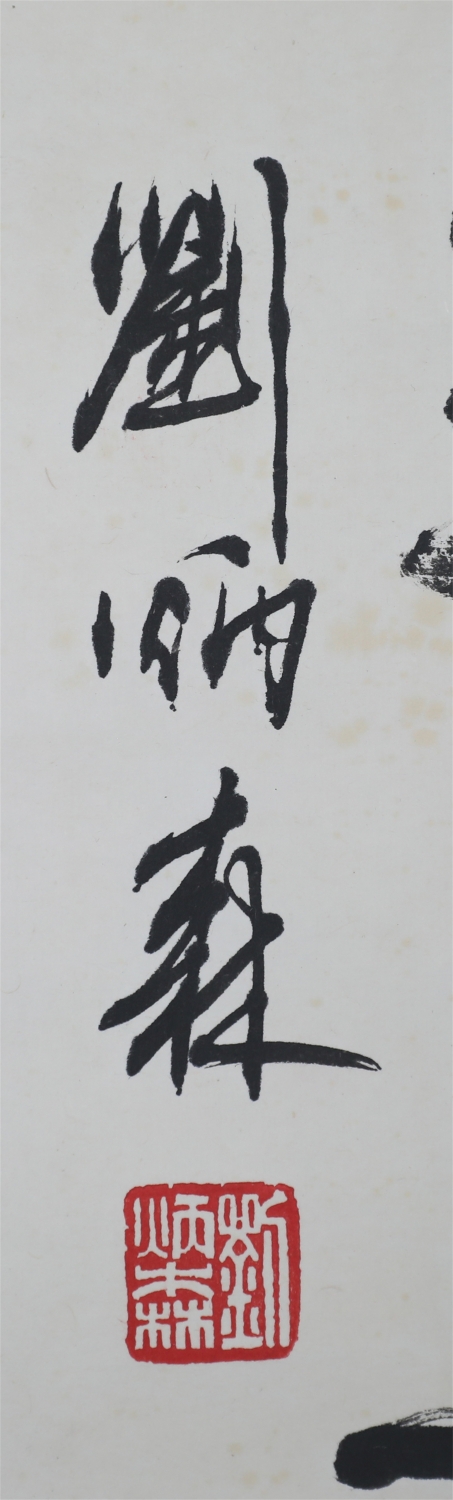 劉炳森
劉炳森